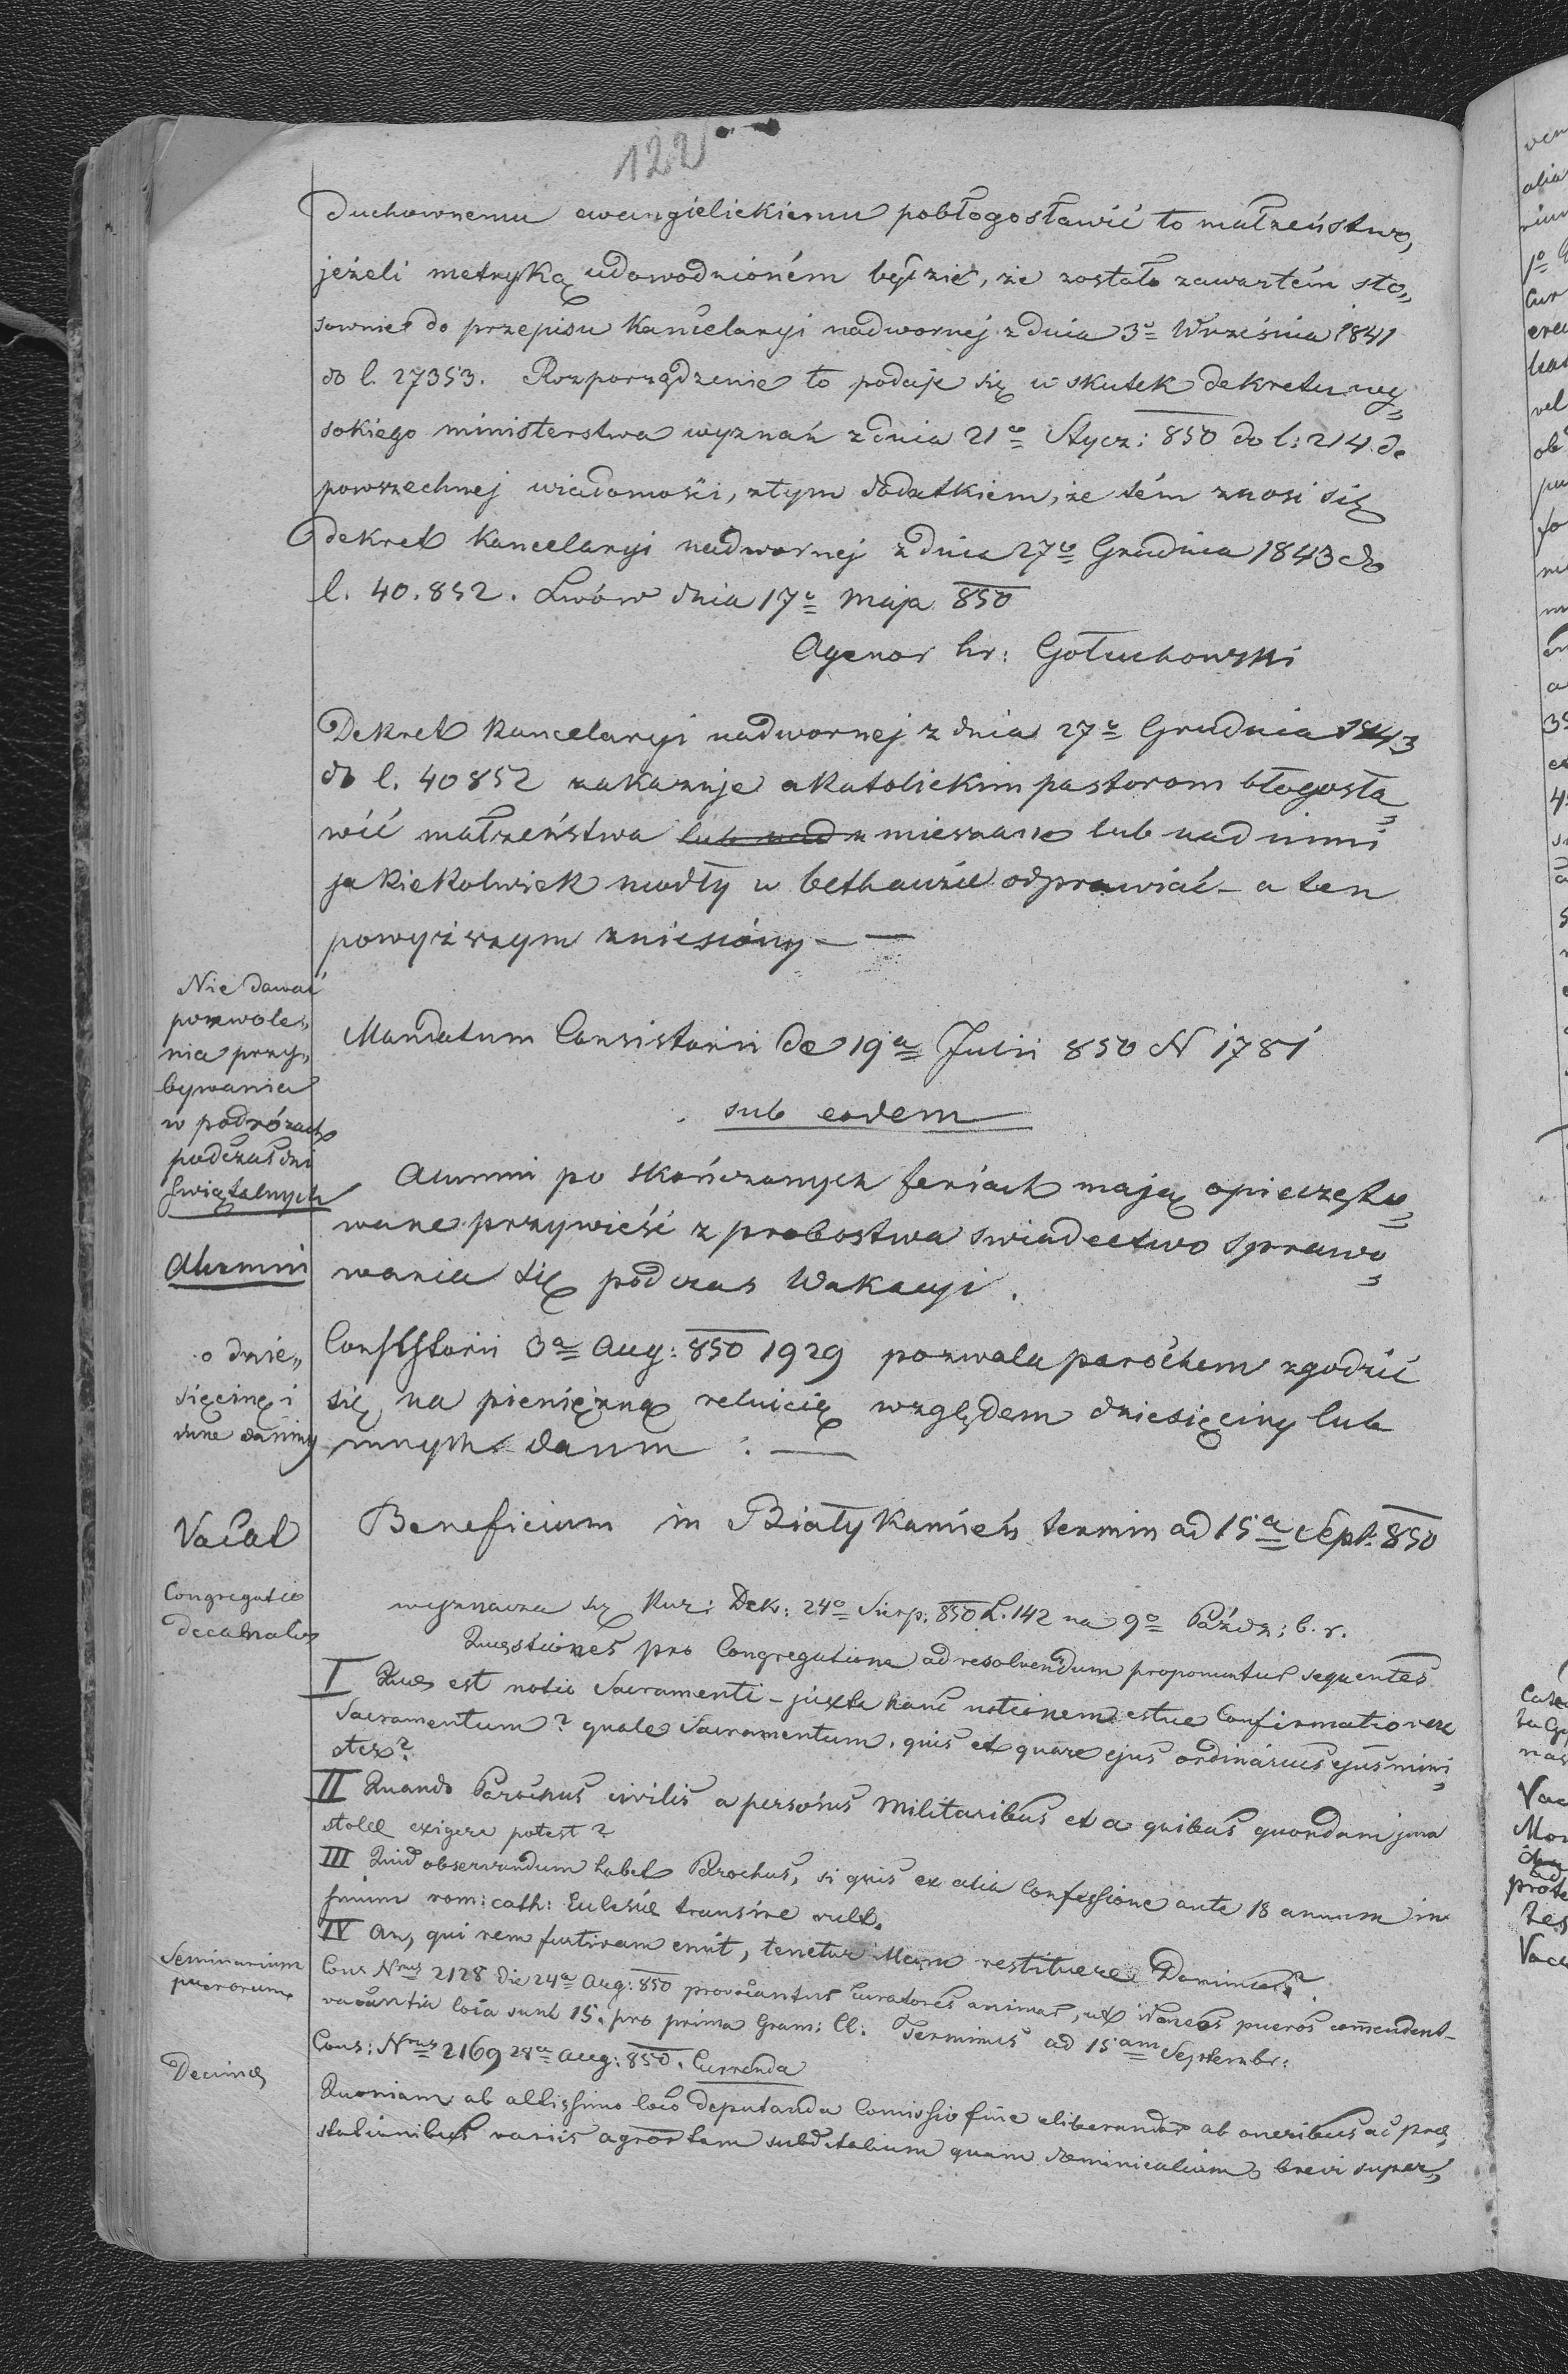 122
duchownemu ewangielickiemu pobłogosławić to małżeństwo,
jeżeli metryką udowodnioném będzie, że zostało zawartém sto„
sownie do przepisu Kancelaryi nadwornej z dnia 3º Września 1841
do l. 27353. Rozporządzenie to podaje się w skutek dekretu wy„
sokiego ministerstwa wyznań z dnia 21º Stycz: 850 do l: 214 do
powszechnej wiadomości, z tym dodatkiem, że tém znosi się
dekret Kancelaryi nadwornej z dnia 27º Grudnia 1843 do
l. 40.852. Lwów dnia 17º Maja 850
Agenor hr: Gołuchowski
Dekret Kancelaryi nadwornej z dnia 27º Grudnia 1843
do l. 40852 zakazuje akatolickim pastorom błogosła„
wić małżeństwa mieszane lub nad nimi
jakiekolwiek modły w bethauzie odprawiać – a ten
powyższym zniesiony –
Nie dawać
pozwole„
nia przy„
bywania
w podróżach
podczas dni
świątalnych
Mandatum Consistorii de 19ª Julii 850 N 1781
sub eodem
Alumni
Alumni po skończonych feriach mają opieczęto„
wane przywieść z probostwa swiadectwo sprawo„
wania się podczas Wakacyi.
o dzie„
sięcinę i
inne daniny
Consistorii 3ª Aug: 850 1929 pozwala parochom zgodzić
się na pieniężną reluicię względem dziesięciny lub
innych danin : —
Vacat
Beneficium in Biały Kamień termin ad 15ª Sept. 850
Congregatio
decanalis
wyznacza się Kur: Dek: 24º Sierp: 850 L. 142 na 9º Paźdz: b. r.
Quæstiones pro Congregatione ad resolvendum proponuntur sequentes
I Quæ est notio Sacramenti – juxta hanc notionem estne Confirmatio vere
Sacramentum? quale Sacramentum, quis et quare ejus ordinarius ejus mini„
ster?
II Quando Parochus civilis a personis Militaribus et a quibus quondam jura
stolæ exigere potest?
III Quid observandum habet Parochus, si quis ex alia Confessione ante 18 annum in
sinum rom: cath: Eclesiæ transire vult.
IV An, qui rem furtivam emit, tenetur illam restituere Domino?
Seminarium
puerorum
Cons Nrus 2128 die 24ª Aug: 850 provocantur curatores animar, ut idoneos pueros comendent –
vacantia loca sunt 15. pro prima Gram: Cl: Terminus ad 15am Septembr:
Decimæ
Cons: Nrus 2169 28ª Aug: 850. Currenda
Quoniam ab altissimo loco deputanda Comissio fine eliberandor ab oneribus ac præ„
stationibus variis agror tam subditalium quam dominicalium, brevi super„